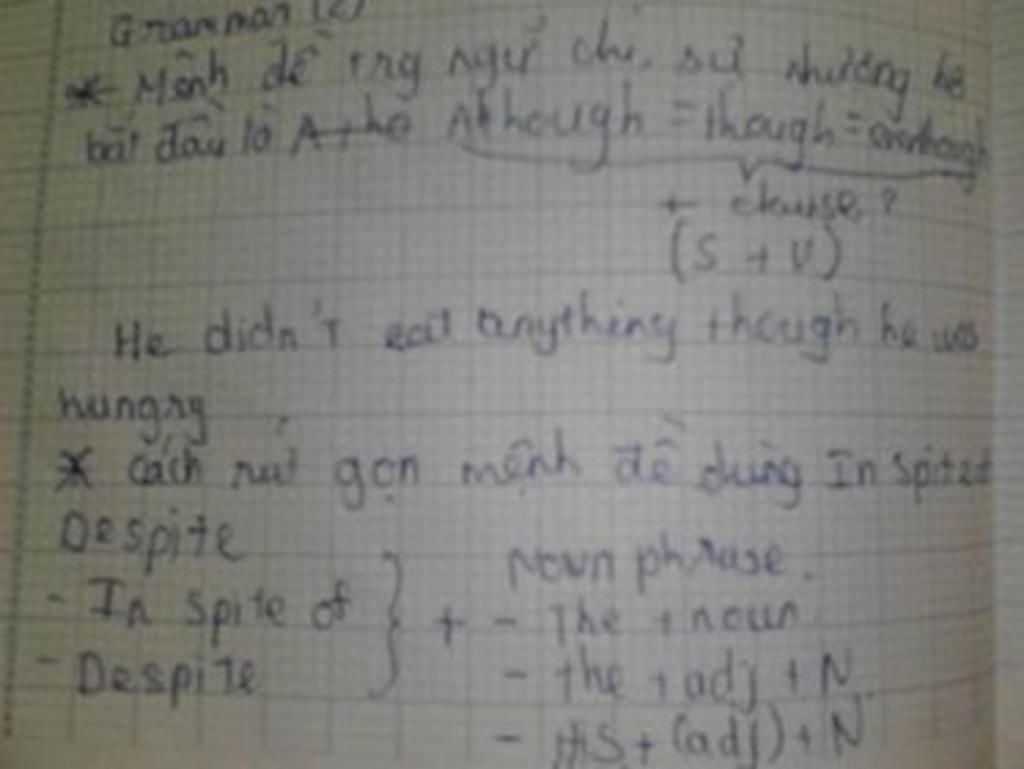 Grammar (2)
* Mệnh đề trg ngữ chỉ sự nhường bộ
bắt đầu là Although = though = eventhough
+ clause ?
(S + V)
He didn't eat anything though he was
hungry
* cách rút gọn mệnh đề dùng In spite of
Despite
Noun phrase.
- In spite of } + - The + noun
- Despite - the + adj + N
- + (adj) + N